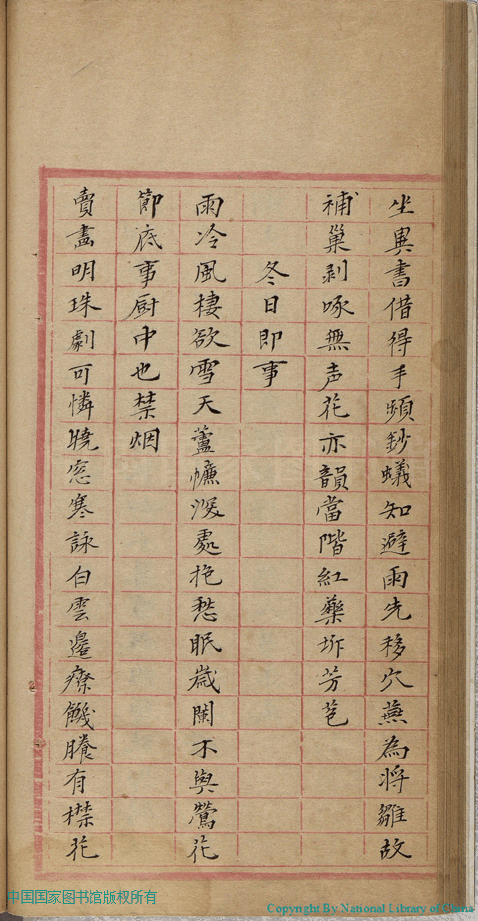 坐異書借得手頻鈔蟻知避雨先移穴燕為将雛故
補巢剥啄無声花亦韻當階紅藥坼芳苞
冬日即事
雨冷風棲欲雪天蘆㡘深處抱愁眠嵗闌不與鶯花
節底事厨中也禁烟
賣畫明珠劇可憐曉窓寒詠白雲邊療饑賸有襟花
中国国家图书馆版权所有
Copyright By National Library of China